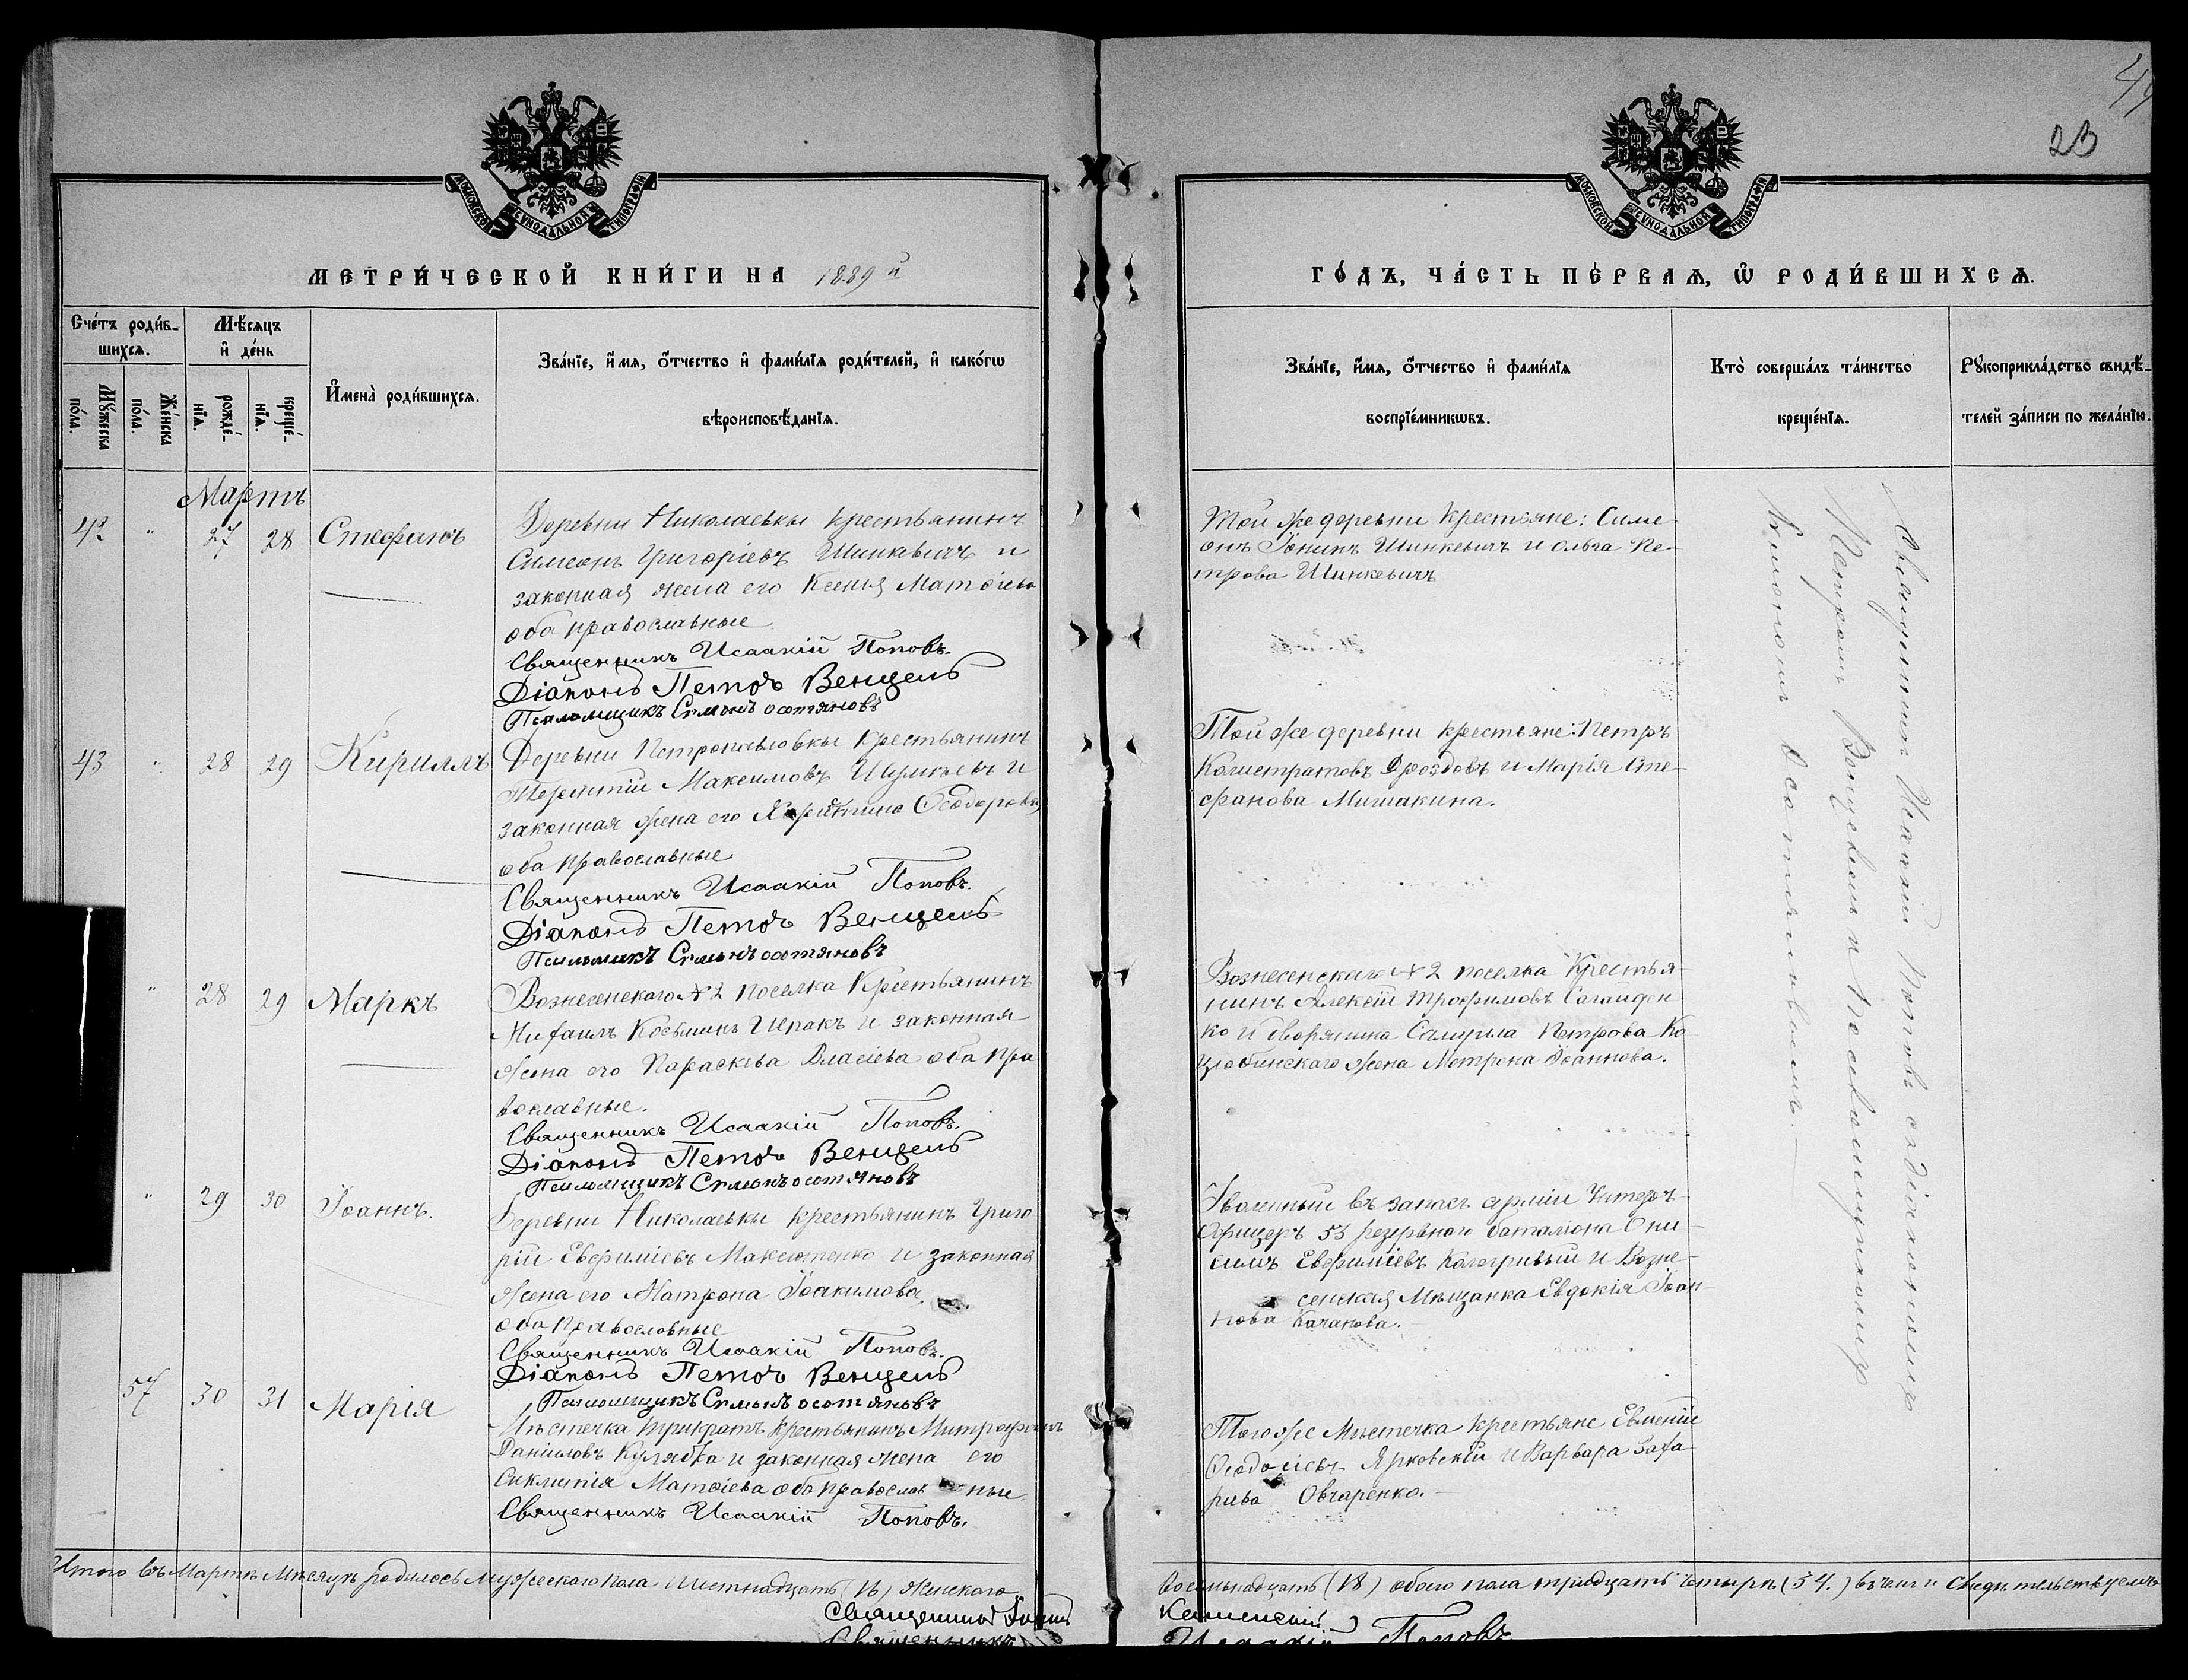 44
23
МОСКОВСКОЙ СѴНОДАЛЬНОЙ ТИПОГРАФІИ
МОСКОВСКОЙ СѴНОДАЛЬНОЙ ТИПОГРАФІИ
МЕТРИ́ЧЕСКОЙ КНИ́ГИ НА 1889 й
ГО́ДЪ, ЧА́СТЬ ПЕ́РВАѦ, Ѡ҆ РОДИ́ВШИХСѦ.
Сче́тъ роди́в-
шихсѧ.
Мꙋ́жеска по́ла.
Же́нска по́ла.
Мѣ́сѧцъ
и҆ де́нь
рожде́-
нїѧ.
креще́-
нїѧ.
И҆мена̀ роди́вшихсѧ.
Зва́нїе, и҆́мѧ, ѻ҆́тчество и҆ фами́лїѧ роди́телей, и҆ како́гѡ
вѣроисповѣ́данїѧ.
Зва́нїе, и҆́мѧ, ѻ҆́тчество и҆ фами́лїѧ
воспрїе́мникѡвъ.
Кто̀ соверша́лъ та́инство
креще́нїѧ.
Рꙋкоприкла́дство свидѣ́-
телей за́писи по жела́нїю.
Мартъ
42 " 27 28 Стефанъ
Деревни Николаевки крестьянинъ
Симеонъ Григоріевъ Шинкевичъ и
законная жена его Ксенія Матѳіева
оба православные
Священникъ Исаакій Поповъ.
Діаконъ Петръ Венцель
Псаломщикъ Симонъ Осотяновъ
Той же деревни крестьяне: Симе-
онъ Шинкевичъ и Ольга Пе-
трова Шинкевичъ
43 " 28 29 Кириллъ
Деревни Петропавловки крестьянинъ
Терентій Максимовъ и
законная жена его Ѳеодорова,
оба православные
Священникъ Исаакій Поповъ.
Діаконъ Петръ Венцель
Псаломщикъ Симонъ Осотяновъ
Той же деревни крестьяне: Петръ
Дроздовъ и Марія Сте-
фанова Мишакина.
" 28 29 Маркъ
Вознесенскаго № 2 поселка крестьянинъ
Михаилъ Косьминъ и законная
жена его Параскева Власіева оба пра
вославные.
Священникъ Исаакій Поповъ.
Діаконъ Петръ Венцель
Псаломщикъ Симонъ Осотяновъ
Вознесенскаго № 2 поселка крестья-
нинъ Алексій Трофимовъ Сагайден
ко и дворянина Петрова Ко
цюбинскаго жена Матрона Іоаннова.
" 29 30 Іоаннъ.
Деревни Николаевки крестьянинъ Григо
рій Евфиміевъ Максютенко и законная
жена его Матрона Іоакимова,
оба православные
Священникъ Исаакій Поповъ.
Діаконъ Петръ Венцель
Псаломщикъ Симонъ Осотяновъ
Уволенный въ запасъ арміи Унтеръ-
Офицеръ 53 резервнаго баталіона Они-
симъ Евфиміевъ и Возне-
сенская Мѣщанка Евдокія Іоан-
нова Качанова.
57 30 31 Марія
Мѣстечка Трикратъ крестьянинъ Митрофанъ
Даніиловъ Кулябка и законная жена его
Синклитія Матѳіева оба православные
Священникъ Исаакій Поповъ.
Того же Мѣстечка крестьяне Евменій
Ѳеодосіевъ Ярковскій и Варвара Заха
рива Овчаренко.
Священникъ Исаакій Поповъ съ діакономъ
Петромъ Венцелемъ и псаломщикомъ
Симономъ Осотяновымъ.
Итого въ Мартѣ Мѣсяцѣ родилось Мужескаго пола Шестнадцать (16) Женскаго
восемьнадцать (18) обоего пола тридцать четыре (34.) въ чемъ и свидѣтельствуемъ
Священникъ Іоаннъ
Каменскій
Священникъ
Исаакій Поповъ